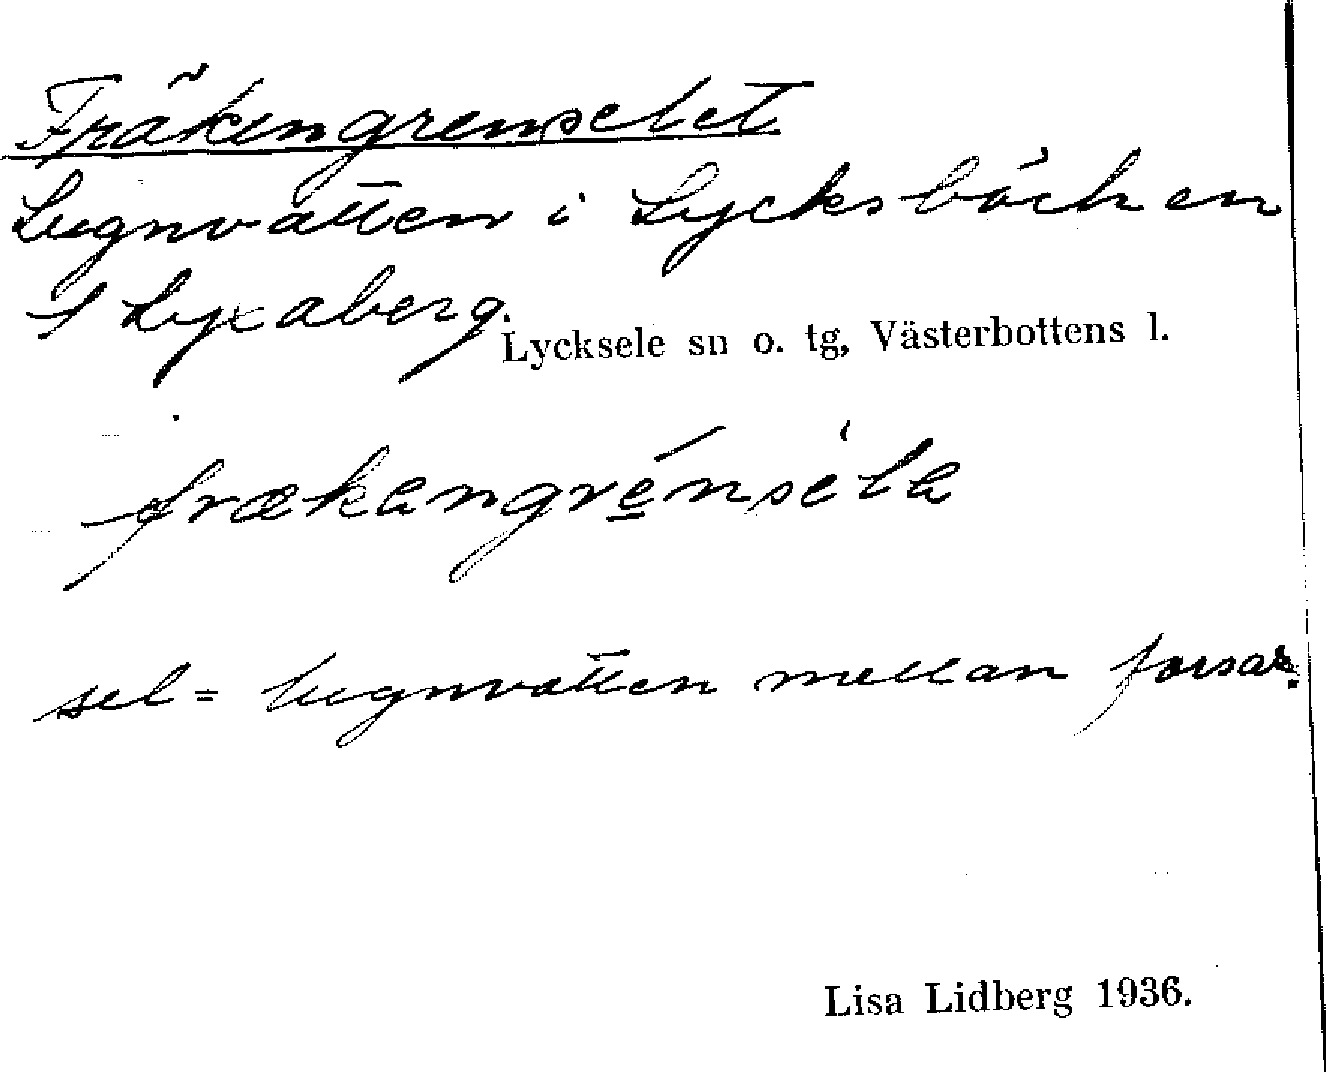 Fräkengrenselet
Lugnvatten i Lycksbäcken
S Lyxaberg.
Lycksele sn o. tg, Västerbottens l.
frækangrénsèla
sel = lugnvatten mellan forsar.
Lisa Lidberg 1936.